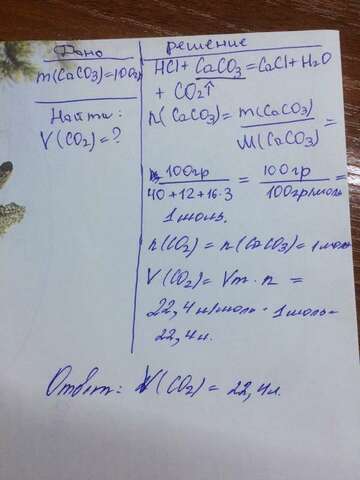 Дано
m(CaCO3)=100гр
Найти:
V(CO2)=?
решение
HCl + CaCO3 = CaCl + H2O
+ CO2↑
n(CaCO3) = m(CaCO3)/M(CaCO3) =
100гр/40+12+16·3 = 100гр/100гр/моль =
1 моль.
n(CO2) = n(CaCO3) = 1 моль
V(CO2) = Vm · n =
22,4 л/моль · 1 моль =
22,4 л.
Ответ: V(CO2) = 22,4 л.